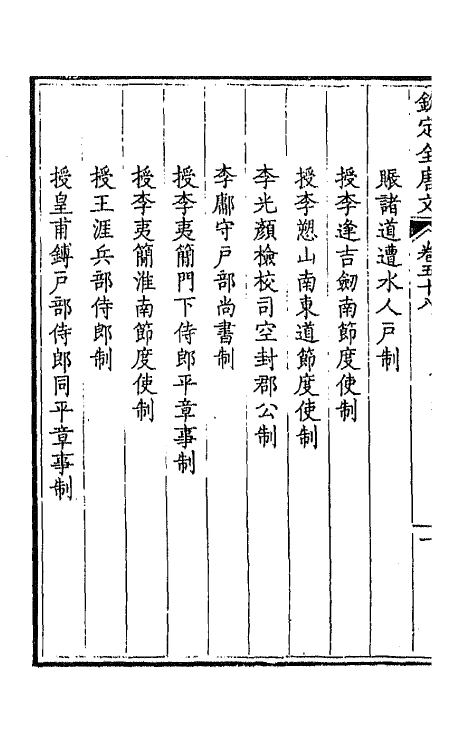 欽定全唐文 卷五十八 一
賬諸道遭水人戶制
授李逢吉劒南節度使制
授李愬山南東道節度使制
李光顏檢校司空封郡公制
李鄘守戶部尚書制
授李夷簡門下侍郎平章事制
授李夷簡淮南節度使制
授王涯兵部侍郎制
授皇甫鎛戶部侍郎同平章事制